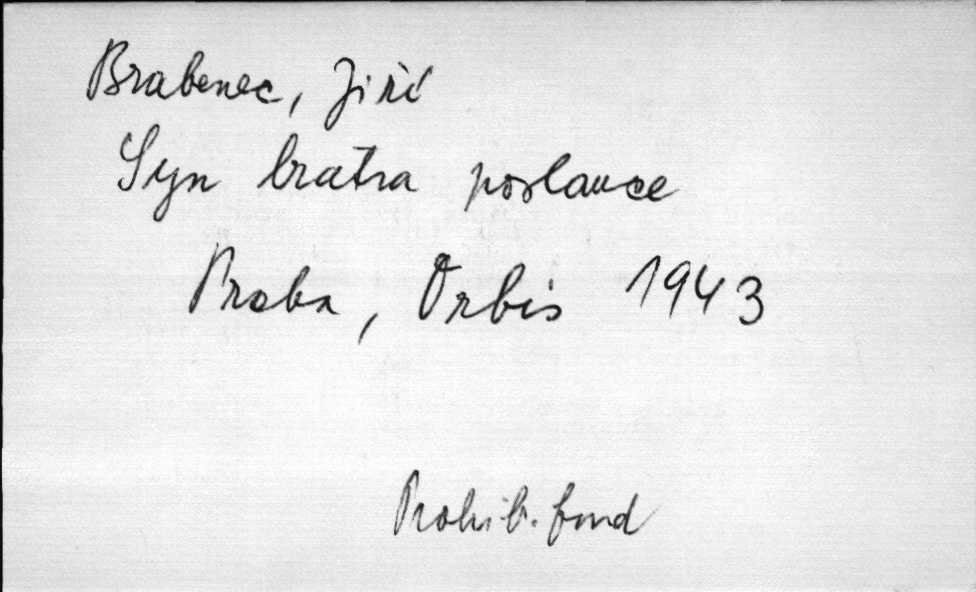 Brabenec, Jiří
Syn bratra poslance
Praha, Orbis 1943
Prohib. fond